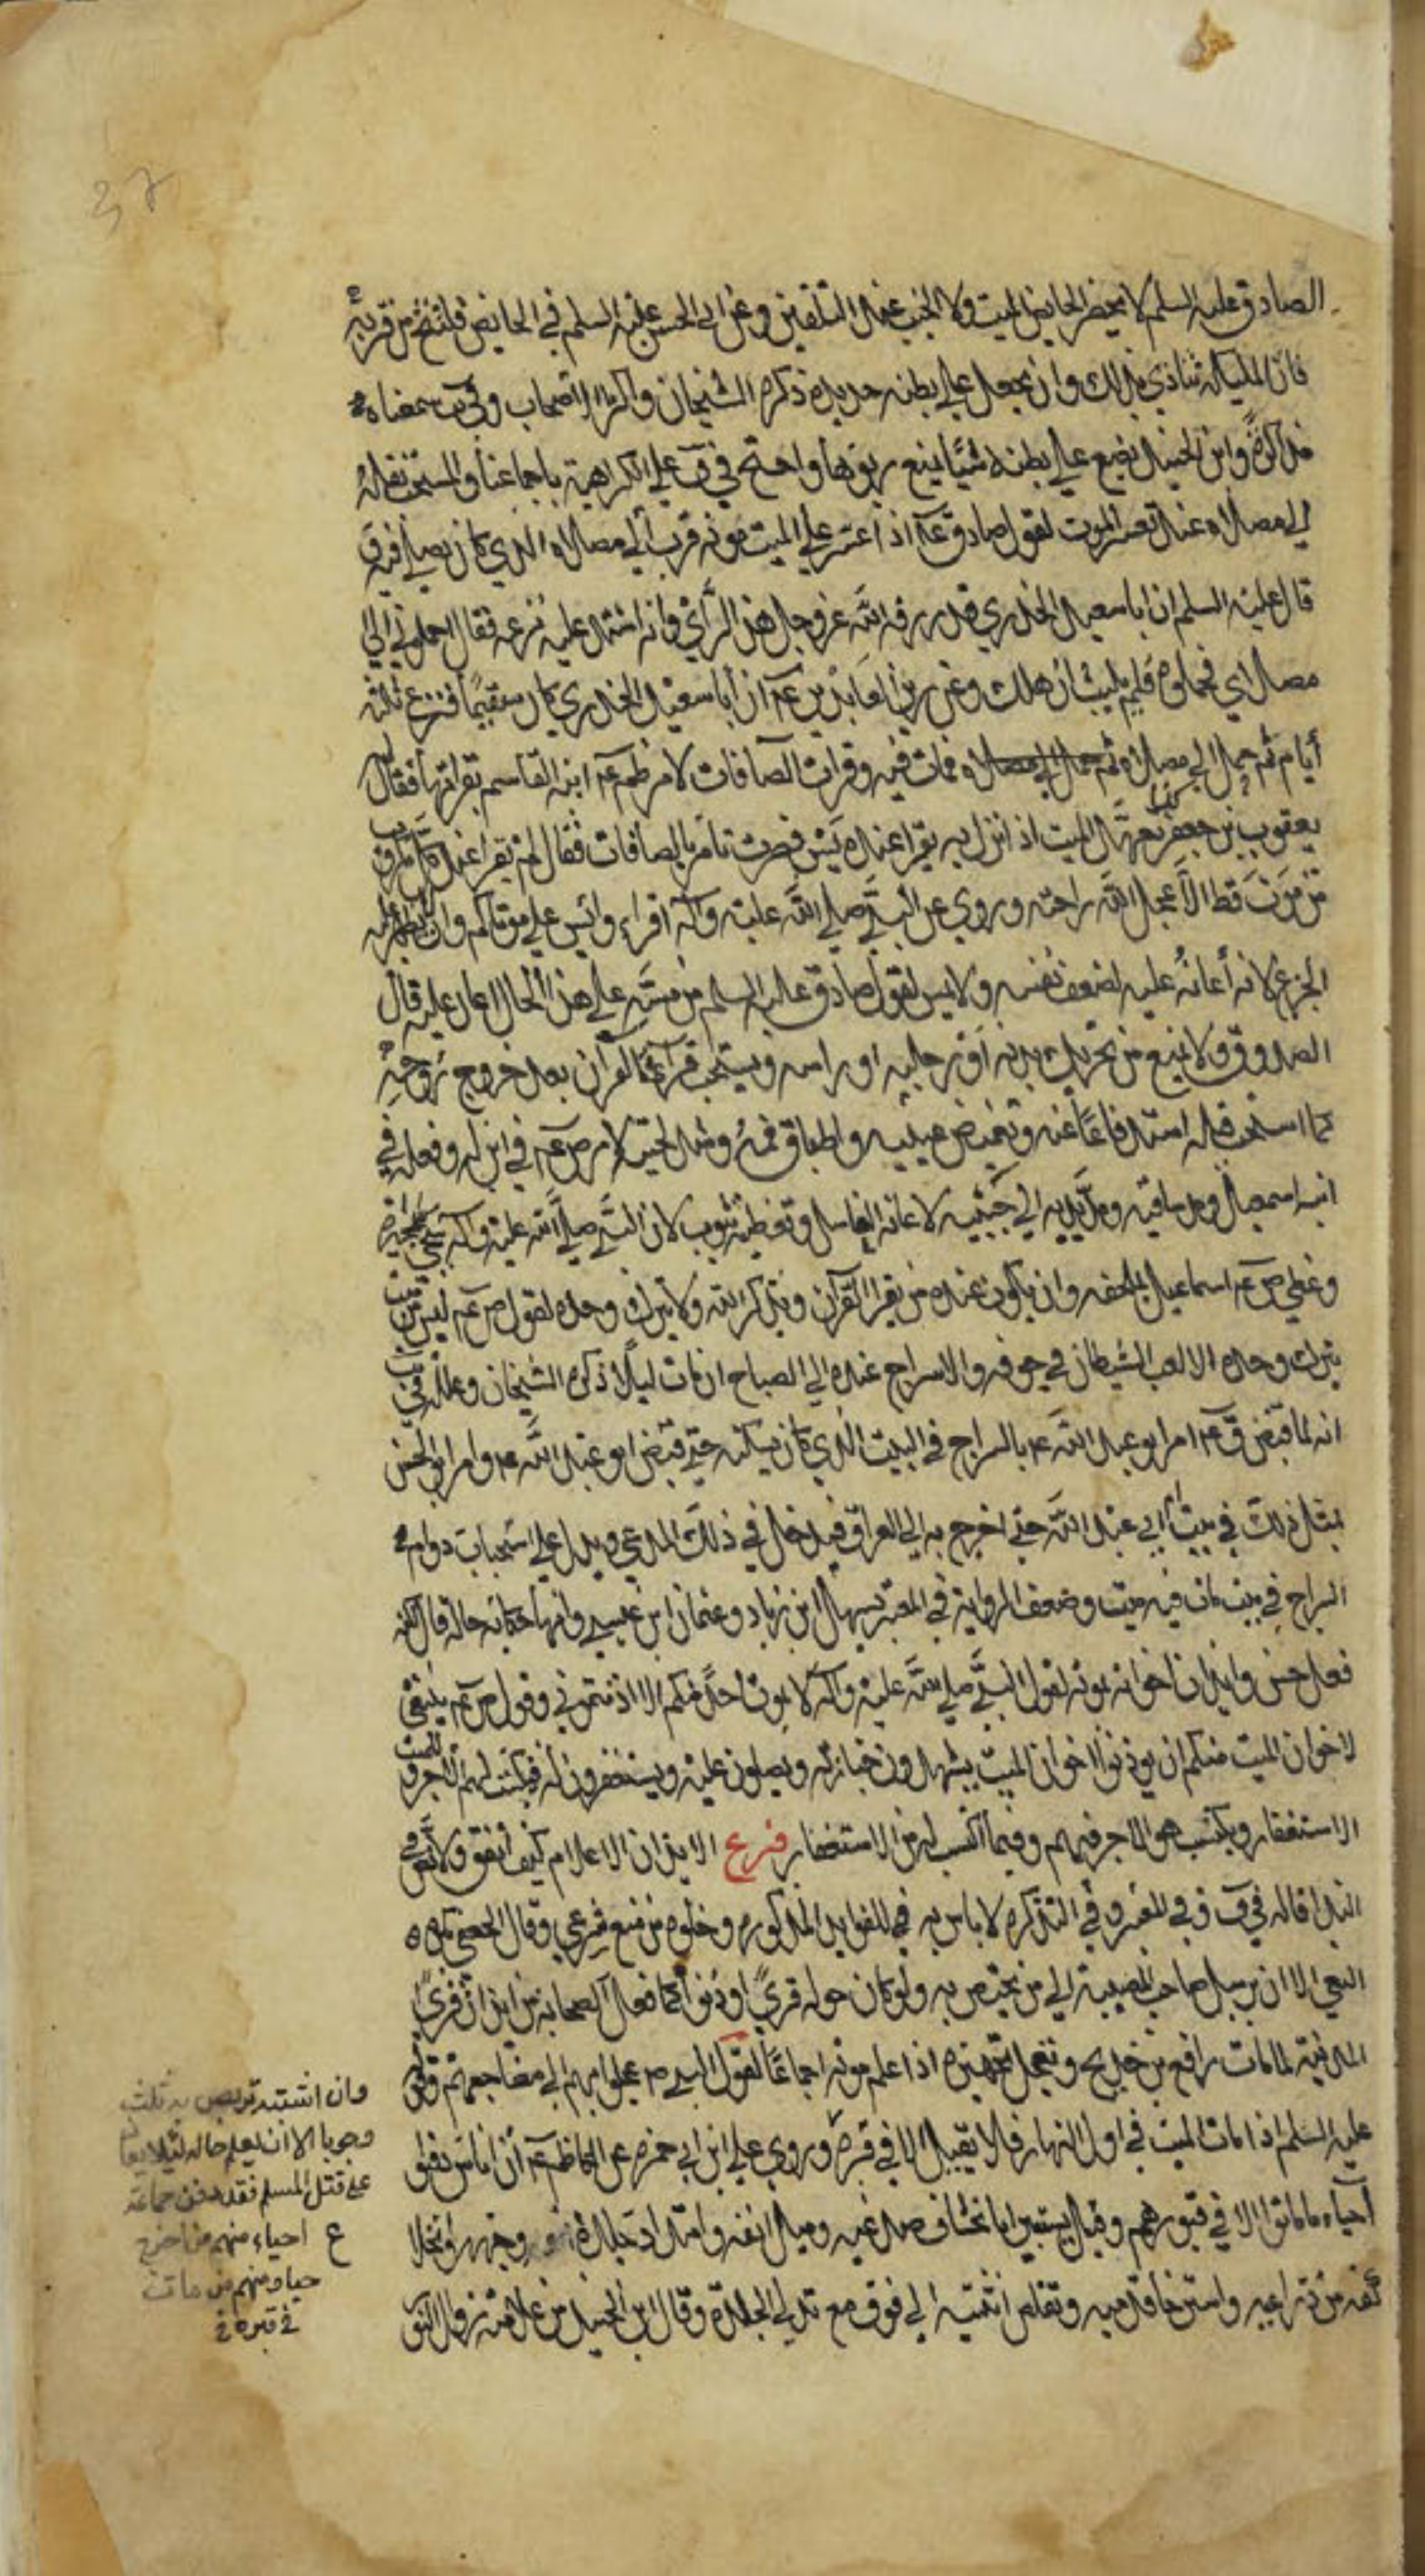 37
الصادق عليه السلم لا يحضر الحايض الميت ولا الجنب عند التلقين وعن ابي الحسن عليه السلم في الحايض فلتنح من قربه
فان المليكة تتاذى بذلك وان يجعل علي بطنه حديدة ذكره الشيخان واكثر الاصحاب وفي سمعناه
مذاكرة وابن الجنيد يضع علي بطنه شيئا يمنع ربوها واحتج في ف علي الكراهية باجماعنا والمستحب نقله
الي مصلاه عند تعسر الموت لقول صادق ع اذا عسر علي الميت موته قرب الي مصلاه الذي كان يصلي فيه
قال عليه السلم ان ابا سعيد الخدري قد رزقه الله عز وجل هذا الرأي وانه اشتد عليه نزعه فقال احملوني الي
مصلاي فحملوه فلم يلبث ان هلك وعن زين العابدين ع ان ابا سعيد الخدري كان مستقيما فنزع ثلثة
أيام ثم حمل الي مصلاه فمات فيه وقراءة الصافات لامر ظم ع ابنه القاسم بقراتها فقال له
يعقوب بن جعفر كنا نعهد الميت اذا نزل به يقرا عنده يس فصرت تامر بالصافات فقال لم يقرا عند مكروب
من موت قط الا عجل الله راحته وروي عن النبي صلي الله عليه وآله اقراء وايس علي موتاكم وان لا يظهر عليه
الجزع لانه أعانة عليه لضعف نفسه ولا يمس لقول صادق عليه السلم من مسه علي هذا الحال اعان عليه قال
الصدوق ولا يمنع من تحريك يديه او رجليه او راسه ويستحب قرآءة القرآن بعد خروج روحه
كما استحب قبله استدفاعا عنه وتغميض عينيه واطباق فمه وشد لحييه لامر ص ع في ابن له وفعله في
ابنه اسمعيل ومد ساقيه ومد يديه الي جنبيه لاعانة الغاسل وتغطيته بثوب لان النبي صلي الله عليه وآله سجي بحبرة
وغطي ص ع اسماعيل بالملحفه وان يكون عنده من يقرا القرآن ويذكر الله ولا يترك وحده لقول ص ع ليس من ميت
يترك وحده الا لعب الشيطان في جوفه والاسراج عنده الي الصباح ان مات ليلا ذكره الشيخان وعلله في يب
انه لما قبض ق ع امر ابو عبد الله ع بالسراج في البيت الذي كان يسكنه حتي قبض ابو عبد الله ع وامر ابو الحسن
بمثل ذلك في بيت أبي عبد الله حتي اخرج به الي العراق فيدخل في ذلك المدعي ويدل علي استحباب دوام
السراج في بيت مات فيه ميت وضعف الرواية في المعتبر بسهل ابن زياد وعثمان ابن عيسي وانها حكاية حال قال لكنه
فعل حسن وايذان اخوانه بموته لقول النبي صلي الله عليه وآله لا يموت احد منكم الا اذنتموني وقول ص ع ينبغي
لاخوان الميت منكم ان يوذنوا اخوان الميت يشهدون جنازته ويصلون عليه ويستغفرون له فيكتب لهم الاجر وللميت
الاستغفار ويكتسب هو الاجر فيهم وفيما اكتسب له من الاستغفار فرع الايذان الاعلام كيف اتفق ولا نص في
النداء قاله في ف وفي المعتبر وفي التذكره لا باس به للفوايد المذكوره وخلوه من منع شرعي وقال الجعفي يكره
النعي الا ان يرسل صاحب المصيبة الي من يختص به ولو كان حوله قري اوذنوا كما فعل الصحابة من ايذان قري
المدينة لما مات رافع بن خديج وتعجيل تجهيزه اذا علم موته اجماعا لقول النبي ص عجلوا بهم الي مضاجعهم وقوله
عليه السلم اذا مات الميت في اول النهار فلا يقيل الا في قبره وروي علي ابن ابي حمزه عن الكاظم ع أن اناسا دفنوا
أحياء ما ماتوا الا في قبورهم وقيل يستبين بانخساف صدغيه وميل انفه وامتداد جلدة وجهه وانخلاع
كفه من ذراعيه واسترخاء قدميه وتقلص انثييه الي فوق مع تدلي الجلدة وقال ابن الجنيد من علامته زوال النور
وان اشتبه تربص به ثلث
وجوبا الا ان يعلم حاله لئلا يعان
علي قتل المسلم فقد دفن جماعة
ع احياء منهم من اخرج
حيا ومنهم من مات
في قبره